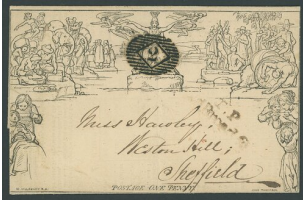 2
Miss Hawley,
Weston Hill,
Sheffield
POSTAGE ONE PENNY